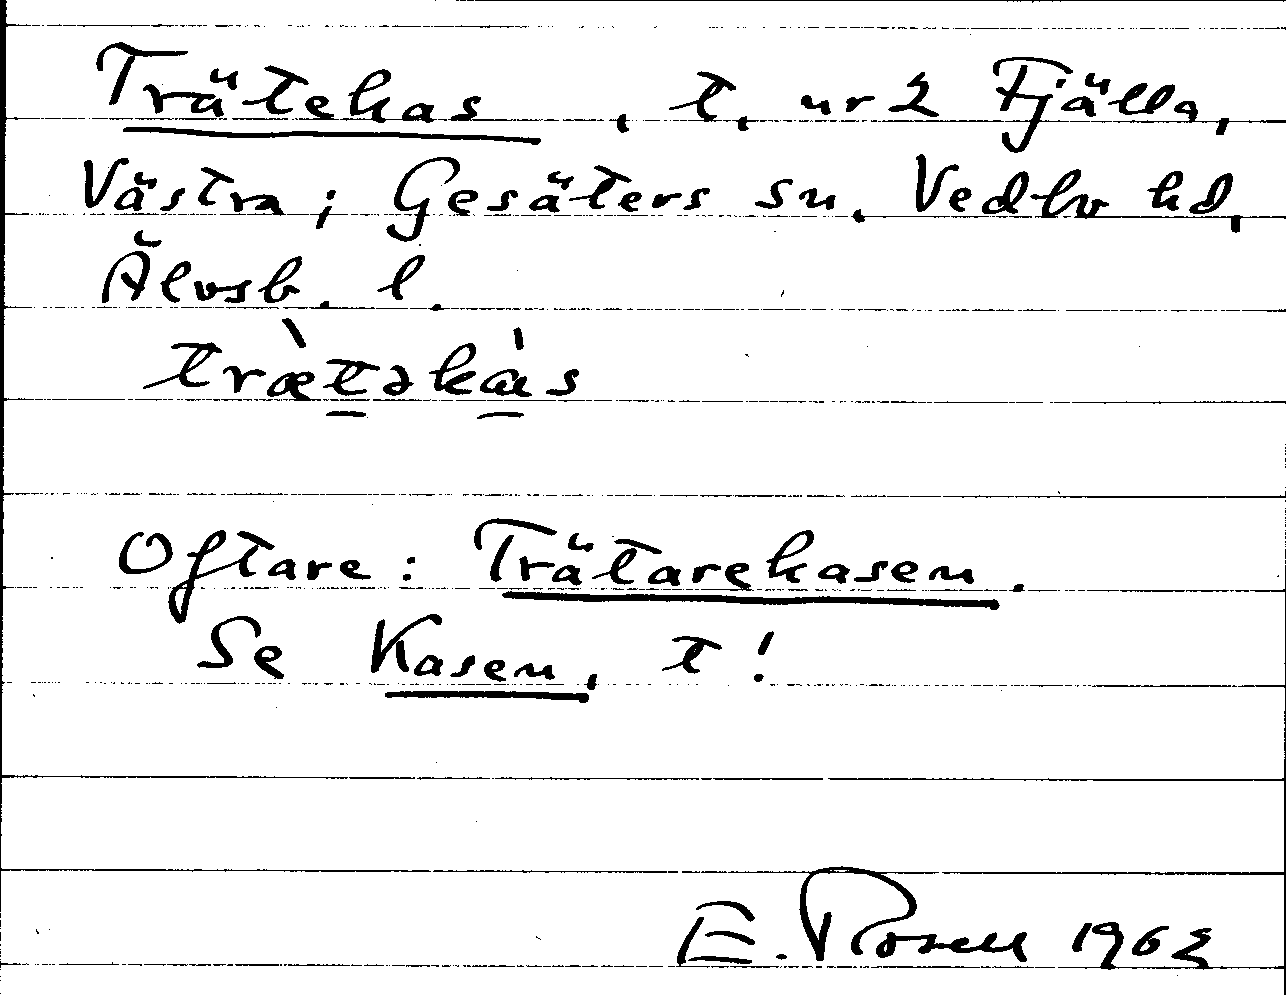 Trätekas, t. nr 2 Fjälla,
Västra; Gesäters sn. Vedbo hd,
Älvsb. l.
træ̀tək&#224;s
Oftare: Trätarekasen.
Se Kasen, t!
E. Rosell 1962